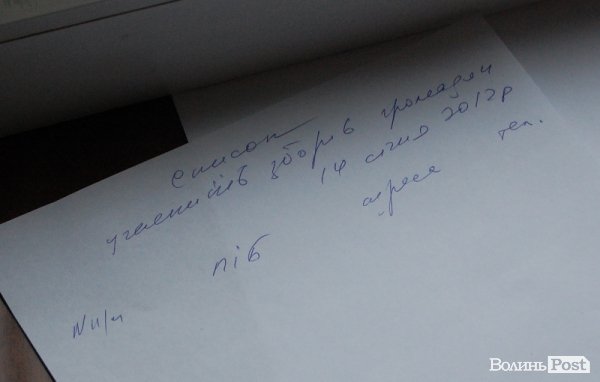 Список
учасників зборів громадян
14 січня 2012р
N п/п ПІБ адреса тел.
ВолиньPost